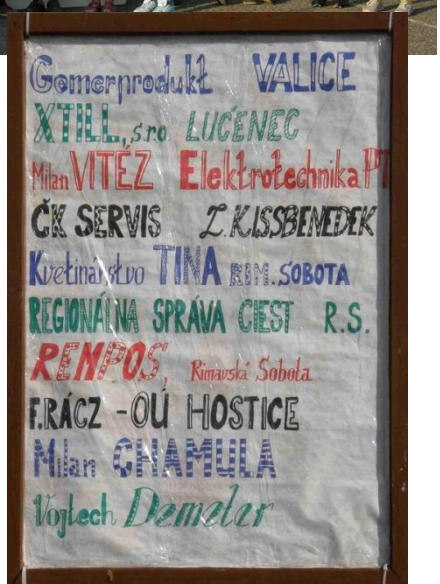 Gemerprodukt VALICE
XTILL, s.r.o. LUČENEC
Milan VITÉZ Elektrotechnika PT
ČK SERVIS Z. KISSBENEDEK
Kvetinárstvo TINA RIM. SOBOTA
REGIONÁLNA SPRÁVA CIEST R.S.
REMPOS, Rimavská Sobota
F. RÁCZ - OÚ HOSTICE
Milan CHAMULA
Vojtech Demeter